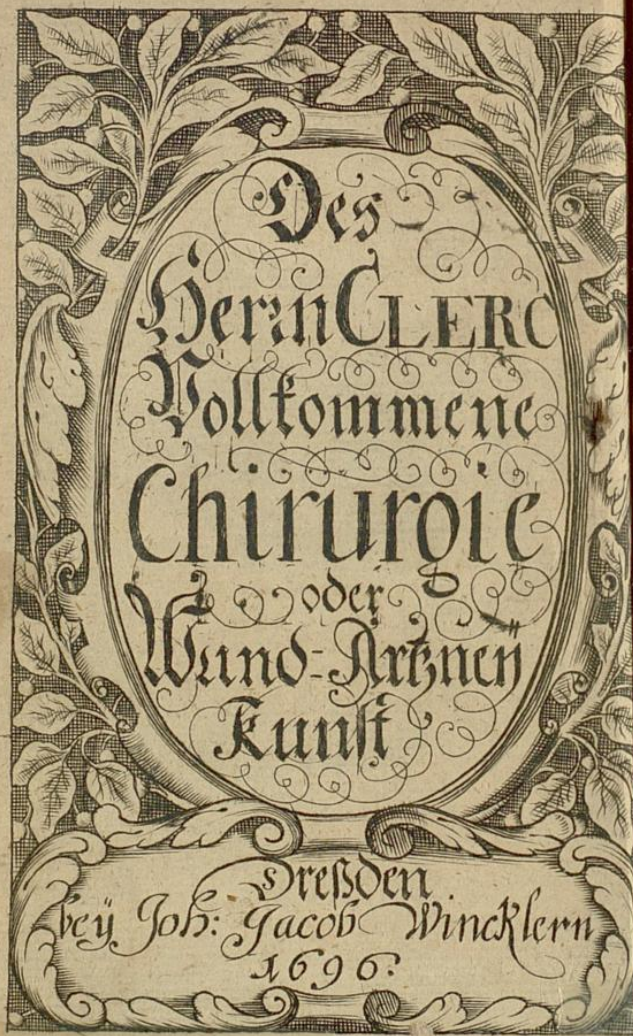 Des
Herrn CLERC
Vollkommene
Chirurgie
oder
Wund-Artzneÿ
Kunst
Dreßden
beÿ Joh: Jacob Wincklern
1696.